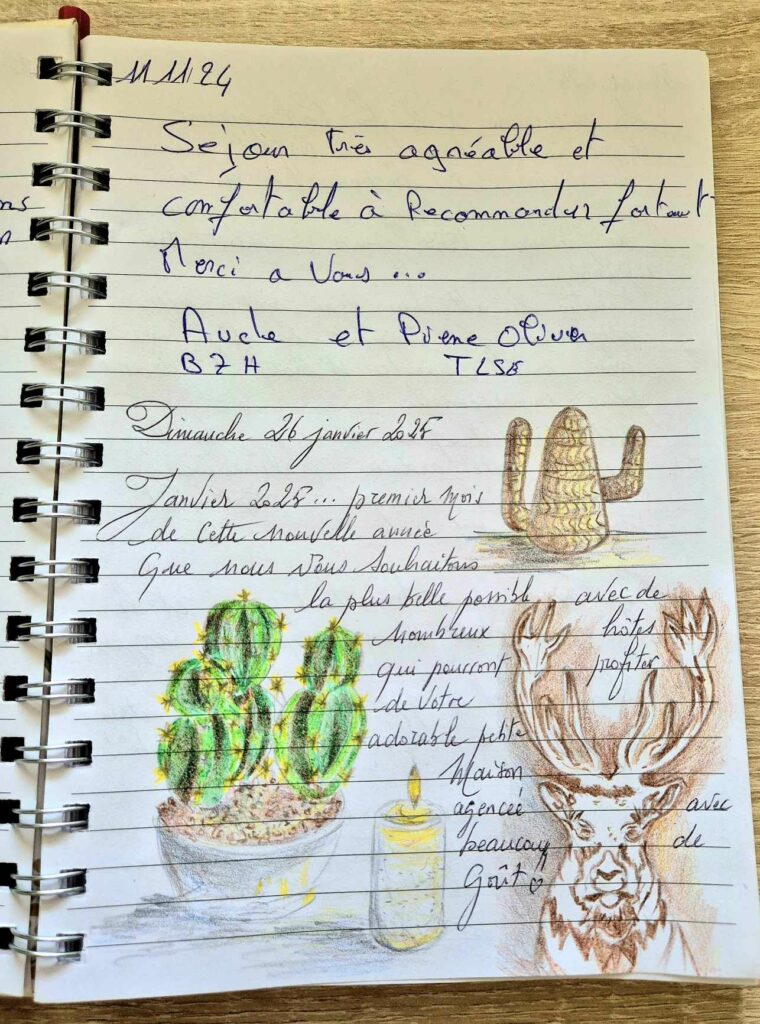 ns
n
11 11 24
Séjour très agréable et
confortable à Recommander fortemt
Merci a Vous ...
Aude et Pierre Olivier
BZH TLSE
Dimanche 26 janvier 2025
Janvier 2025... premier mois
de cette nouvelle année
Que nous vous souhaitons
la plus belle possible avec de
nombreux hôtes
qui pourront profiter
de votre
adorable petite
Maison
agencée avec
beaucoup de
Goût ♡